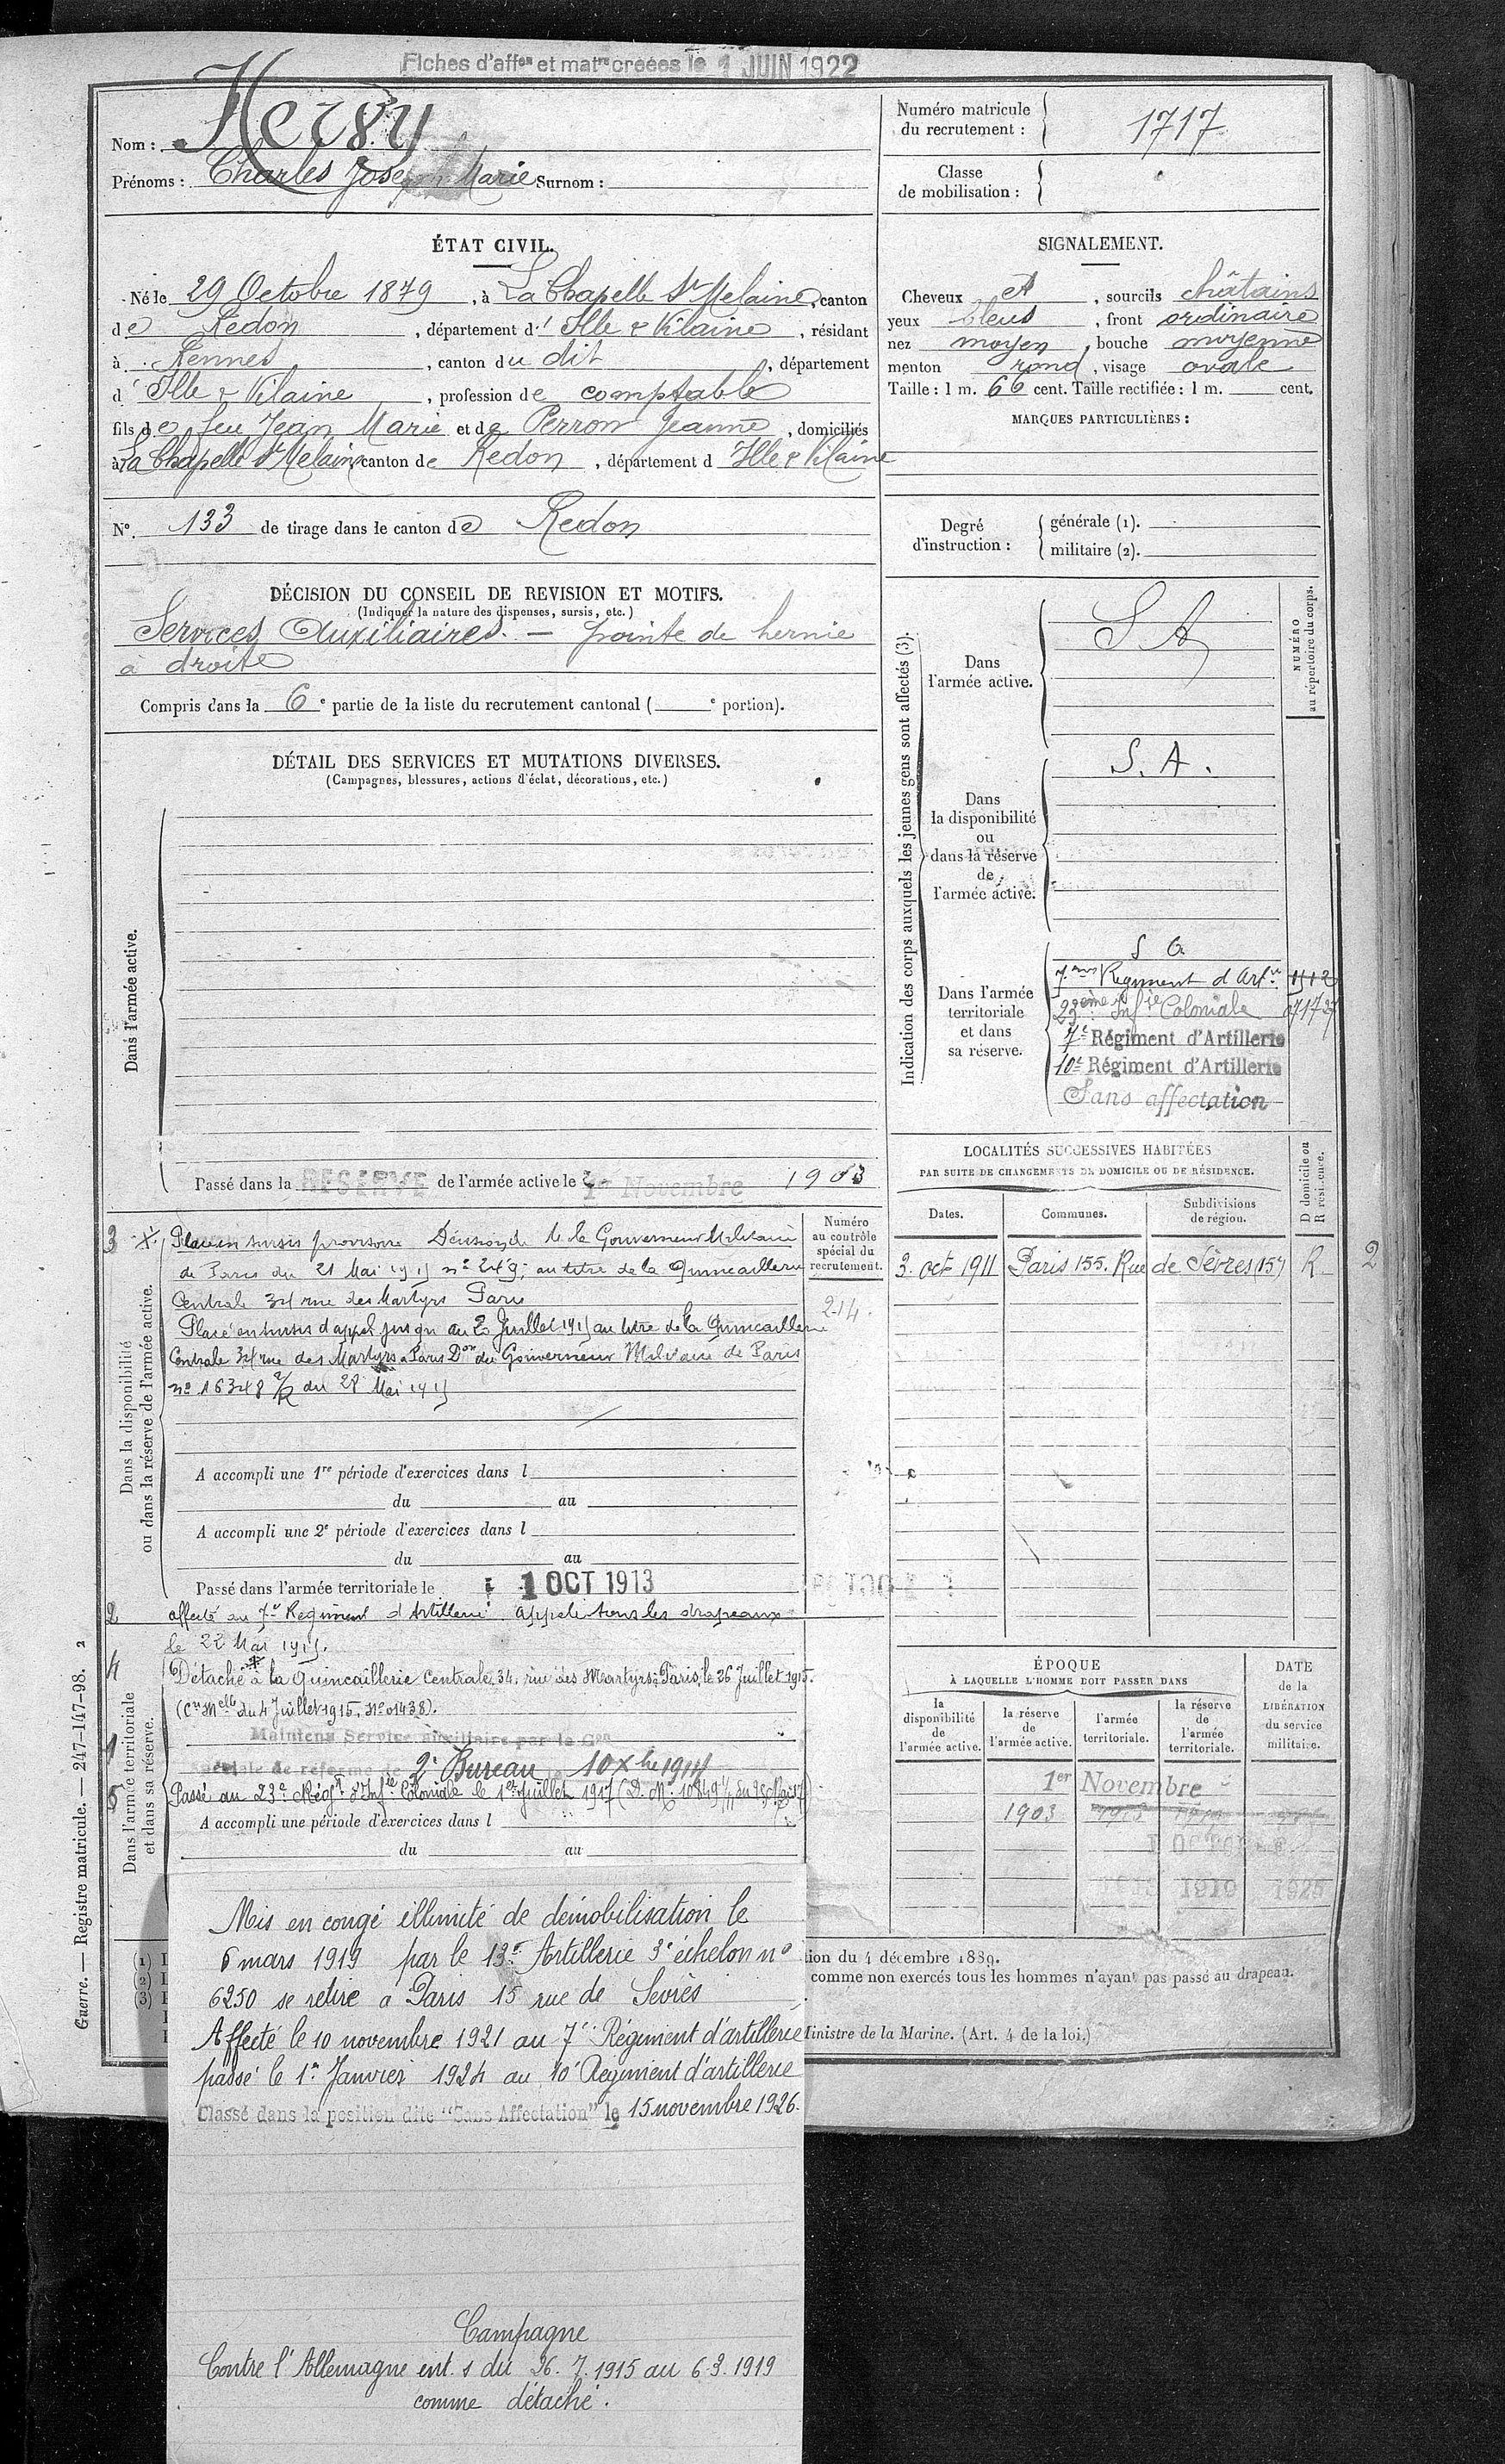 Fiches d'affon et matre créées le 1 JUIN 1922
Nom : Hervy
Prénoms : Charles Joseph Marie Surnom :
Numéro matricule du recrutement : 1717
Classe de mobilisation :
ÉTAT CIVIL.
Né le 29 Octobre 1879, à La Chapelle St Melaine, canton
de Redon, département d' Ille & Vilaine, résidant
à Rennes, canton du dit, département
d' Ille & Vilaine, profession de comptable
fils de feu Jean Marie et de Perron Jeanne, domiciliés
à La Chapelle St Melaine canton de Redon, département d Ille & Vilaine
N° 133 de tirage dans le canton de Redon
SIGNALEMENT.
Cheveux et, sourcils châtains
yeux bleus, front ordinaire
nez moyen, bouche moyenne
menton rond, visage ovale
Taille : 1 m. 66 cent. Taille rectifiée : 1 m. cent.
MARQUES PARTICULIÈRES :
Degré d'instruction :
générale (1).
militaire (2).
DÉCISION DU CONSEIL DE REVISION ET MOTIFS.
(Indiquer la nature des dispenses, sursis, etc.)
Services Auxiliaires. — pointe de hernie
à droite
Compris dans la 6e partie de la liste du recrutement cantonal ( e portion).
DÉTAIL DES SERVICES ET MUTATIONS DIVERSES.
(Campagnes, blessures, actions d'éclat, décorations, etc.)
Dans l'armée active.
Passé dans la RÉSERVE de l'armée active le 1er Novembre 1903
Indication des corps auxquels les jeunes gens sont affectés (3).
NUMÉRO au répertoire du corps.
Dans
l'armée active.
S A
Dans
la disponibilité
ou
dans la réserve
de
l'armée active.
S. A.
Dans l'armée
territoriale
et dans
sa réserve.
S A
7ème Régiment d'Artie
23ème Infie Coloniale
7e Régiment d'Artillerie
10e Régiment d'Artillerie
Sans affectation
LOCALITÉS SUCCESSIVES HABITÉES
PAR SUITE DE CHANGEMENTS DE DOMICILE OU DE RÉSIDENCE.
D domicile ou R résidence.
Dates. Communes. Subdivisions de région.
3. oct 1911 Paris 155. Rue de Sèvres (15e) R 2
Dans la disponibilité
ou dans la réserve de l'armée active.
Numéro
au contrôle
spécial du
recrutement.
214.
3 Placé en sursis provisoire Décision de M. le Gouverneur Militaire
de Paris du 21 Mai 1915 n° 249; au titre de la Quincaillerie
Centrale 34 rue des Martyrs Paris
Placé en sursis d'appel jusqu'au 2 Juillet 1915 au titre de la Quincaillerie
Centrale 34 rue des Martyrs à Paris Don du Gouverneur Militaire de Paris
n° 16348 du 28 Mai 1915
A accompli une 1re période d'exercices dans l
du au
A accompli une 2e période d'exercices dans l
du au
Passé dans l'armée territoriale le 1 OCT 1913
Dans l'armée territoriale
et dans sa réserve.
2 affecté au 7e Régiment d'Artillerie. Appelé sous les drapeaux
le 22 Mai 1915.
4 Détaché à la Quincaillerie Centrale 34, rue des Martyrs à Paris, le 26 Juillet 1915.
(Cre Melle du 4 Juillet 1915, N° 01438).
1 Maintenu Service auxiliaire par la Con
Spéciale de réforme de 2e Bureau le 10 Xbre 1914
5 Passé au 23e Régt d'Infie Coloniale le 1er Juillet 1917
A accompli une période d'exercices dans l
du au
ÉPOQUE
À LAQUELLE L'HOMME DOIT PASSER DANS
DATE
de la
LIBÉRATION
du service
militaire.
la disponibilité de l'armée active.
la réserve de l'armée active.
l'armée territoriale.
la réserve de l'armée territoriale.
1er Novembre
1903
Guerre. — Registre matricule. — 247-147-98. 2
tion du 4 décembre 1889.
comme non exercés tous les hommes n'ayant pas passé au drapeau.
Ministre de la Marine. (Art. 4 de la loi.)
Mis en congé illimité de démobilisation le
6 mars 1919 par le 13e Artillerie 3e échelon n°
6250 se retire a Paris 15 rue de Sevrès
Affecté le 10 novembre 1921 au 7e Régiment d'artillerie
passé le 1er Janvier 1924 au 10e Régiment d'artillerie
Classé dans la position dite "Sans Affectation" le 15 novembre 1926.
Campagne
Contre l'Allemagne int. s du 26. 7. 1915 au 6.3.1919
comme détaché.